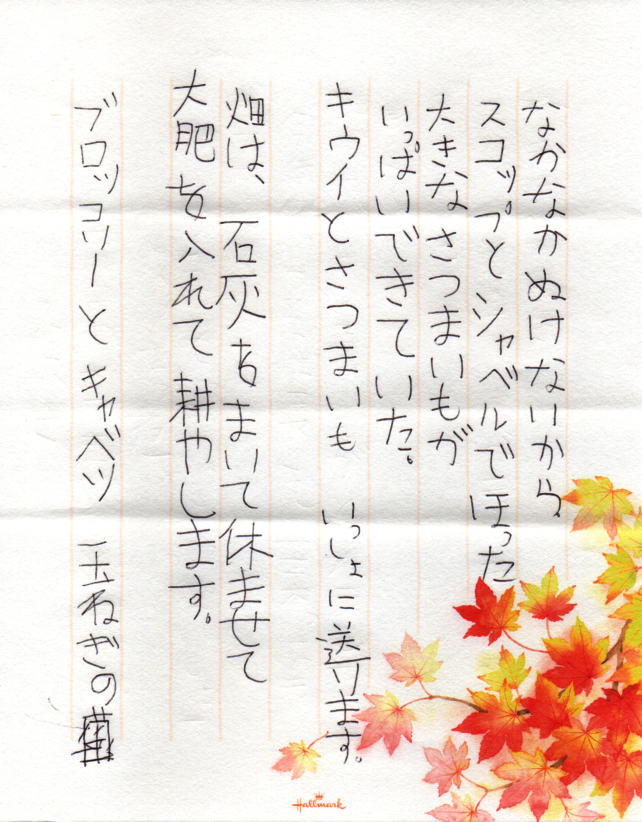 なかなかぬけないから、
スコップとシャベルでほった
大きなさつまいもが
いっぱいできていた。
キウイとさつまいも いっしょに送ります。
畑は、石灰をまいて休ませて
大肥を入れて耕やします。
ブロッコリーとキャベツ 玉ねぎの
Hallmark